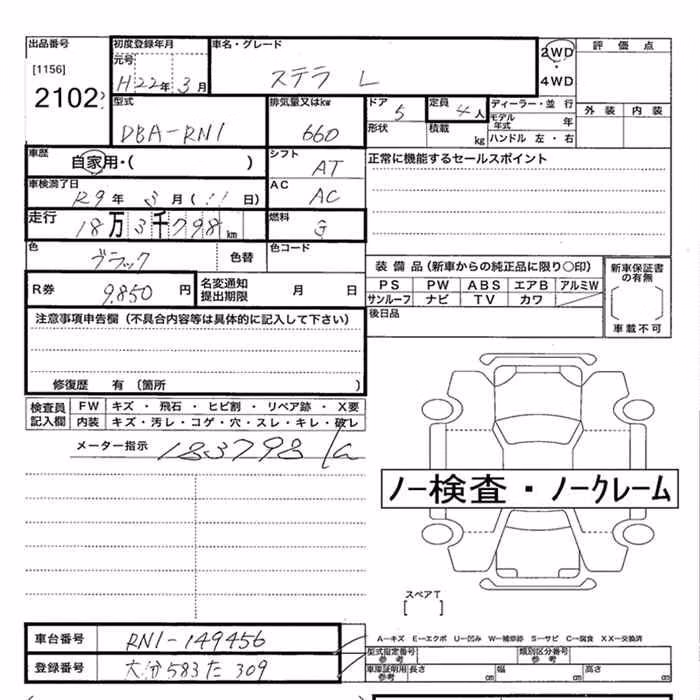 出品番号
[1156]
2102
初度登録年月
元号
H22年 3月
車名・グレード
ステラ L
2WD
・
4WD
評価点
外装 内装
型式
DBA-RN1
排気量又はkw
660
ドア 5
定員 4人
形状
積載 kg
ディーラー・並行
モデル年式 年
ハンドル 左・右
車歴
自家用・( )
シフト
AT
正常に機能するセールスポイント
車検満了日
R9年 3月( 11 日)
AC
AC
走行
18万3千798km
燃料
G
色
ブラック
色替
色コード
R券
9,850 円
名変通知
提出期限
月 日
装備品(新車からの純正品に限り〇印)
PS PW ABS エアB アルミW
サンルーフ ナビ TV カワ
後日品
新車保証書
の有無
車載不可
注意事項申告欄(不具合内容等は具体的に記入して下さい)
修復歴 有〔箇所 〕
検査員
記入欄
FW キズ・飛石・ヒビ割・リペア跡・X要
内装 キズ・汚レ・コゲ・穴・スレ・キレ・破レ
メーター指示 183798
ノー検査・ノークレーム
スペアT
[ ]
A―キズ E―エクボ U―凹み W―補修跡 S―サビ C―腐食 XX―交換済
車台番号
RN1-149456
型式指定番号
参考
類別区分番号
参考
登録番号
大分 583 た 309
車庫証明用
参考
長さ cm 幅 cm 高さ cm